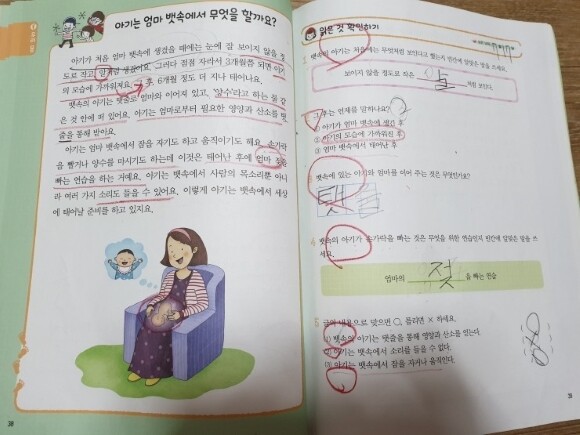 아기는 엄마 뱃속에서 무엇을 할까요?
아기가 처음 엄마 뱃속에 생겼을 때에는 눈에 잘 보이지 않을 정
도로 작고, 알처럼 생겼어요. 그러다 점점 자라서 3개월쯤 되면 아기
의 모습에 가까워져요. 그 후 6개월 정도 더 지나 태어나요.
뱃속의 아기는 탯줄로 엄마와 이어져 있고, '양수'라고 하는 물 같
은 것 안에 떠 있어요. 아기는 엄마로부터 필요한 영양과 산소를 탯
줄을 통해 받아요.
아기는 엄마 뱃속에서 잠을 자기도 하고 움직이기도 해요. 손가락
을 빨거나 양수를 마시기도 하는데 이것은 태어난 후에 엄마 젖을
빠는 연습을 하는 거예요. 아기는 뱃속에서 사람의 목소리뿐 아니
라 여러 가지 소리도 들을 수 있어요. 이렇게 아기는 뱃속에서 세상
에 태어날 준비를 하고 있지요.
38
읽은 것 확인하기
1 뱃속의 아기는 처음에는 무엇처럼 보인다고 했는지 빈칸에 알맞은 말을 쓰세요.
보이지 않을 정도로 작은 알 처럼 보인다.
2 그 후는 언제를 말하나요?
① 아기가 엄마 뱃속에 생긴 후
② 아기의 모습에 가까워진 후
③ 엄마 뱃속에서 태어난 후
3 뱃속에 있는 아기와 엄마를 이어 주는 것은 무엇인가요?
탯줄
4 뱃속의 아기가 손가락을 빠는 것은 무엇을 위한 연습인지 빈칸에 알맞은 말을 쓰
세요.
엄마의 젖 을 빠는 연습
5 글의 내용으로 맞으면 ○, 틀리면 × 하세요.
(1) 뱃속의 아기는 탯줄을 통해 영양과 산소를 얻는다.
(2) 아기는 뱃속에서 소리를 들을 수 없다.
(3) 아기는 뱃속에서 잠을 자거나 움직인다.